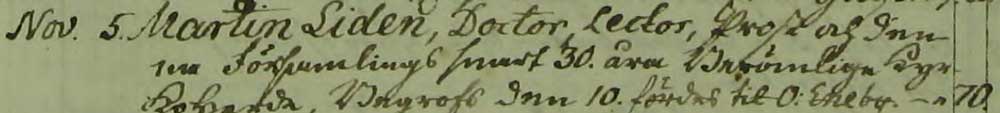 Nov. 5. Martin Liden, Doctor, Lector, Prost och den
na Församlings snart 30. åra Berömlige Kyr
koherde, Begrofs den 10. fördes til Ö: Eneby. — 70.